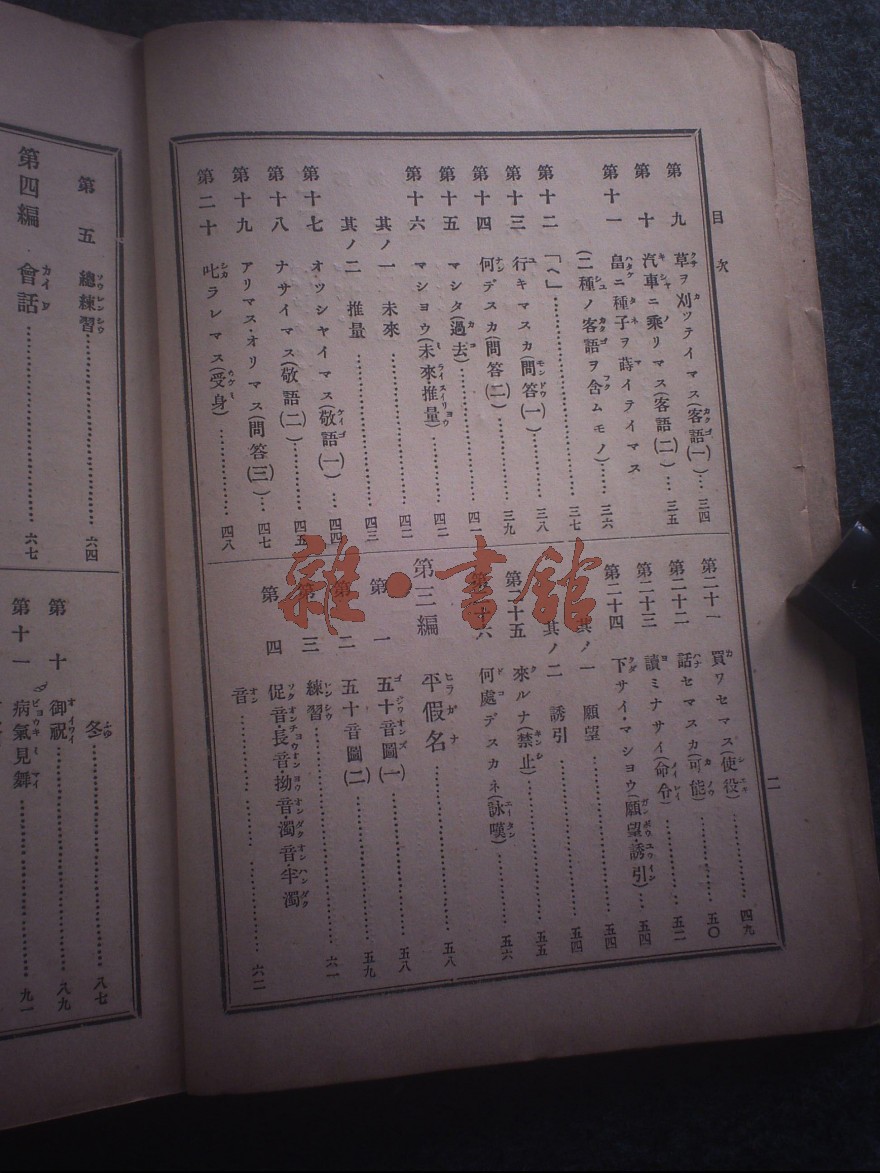 目次
第九 草ヲ刈ツテイマス(客語一)…三四
第十 汽車ニ乘リマス(客語二)…三五
第十一 畠ニ種子ヲ蒔イテイマス
(二種ノ客語ヲ含ムモノ)…三六
第十二 「ヘ」…三七
第十三 行キマスカ(問答一)…三八
第十四 何デスカ(問答二)…三九
第十五 マシタ(過去)…四一
第十六 マシヨウ(未來・推量)…四二
其ノ一 未來…四二
其ノ二 推量…四三
第十七 オツシヤイマス(敬語一)…四四
第十八 ナサイマス(敬語二)…四五
第十九 アリマス・オリマス(問答三)…四七
第二十 叱ラレマス(受身)…四八
第二十一 買ワセマス(使役)…四九
第二十二 話セマスカ(可能)…五〇
第二十三 讀ミナサイ(命令)…五二
第二十四 下サイ・マシヨウ(願望・誘引)…五四
其ノ一 願望…五四
其ノ二 誘引…五四
第二十五 來ルナ(禁止)…五五
第二十六 何處デスカネ(詠嘆)…五六
第三編 平假名…五八
第一 五十音圖(一)…五八
第二 五十音圖(二)…五九
第三 練習…六一
第四 促音・長音・拗音・濁音・半濁
音…六二
二
第五 總練習…六四
第四編 會話…六七
冬…八七
第十 御祝…八九
第十一 病氣見舞…九一
雜·書館